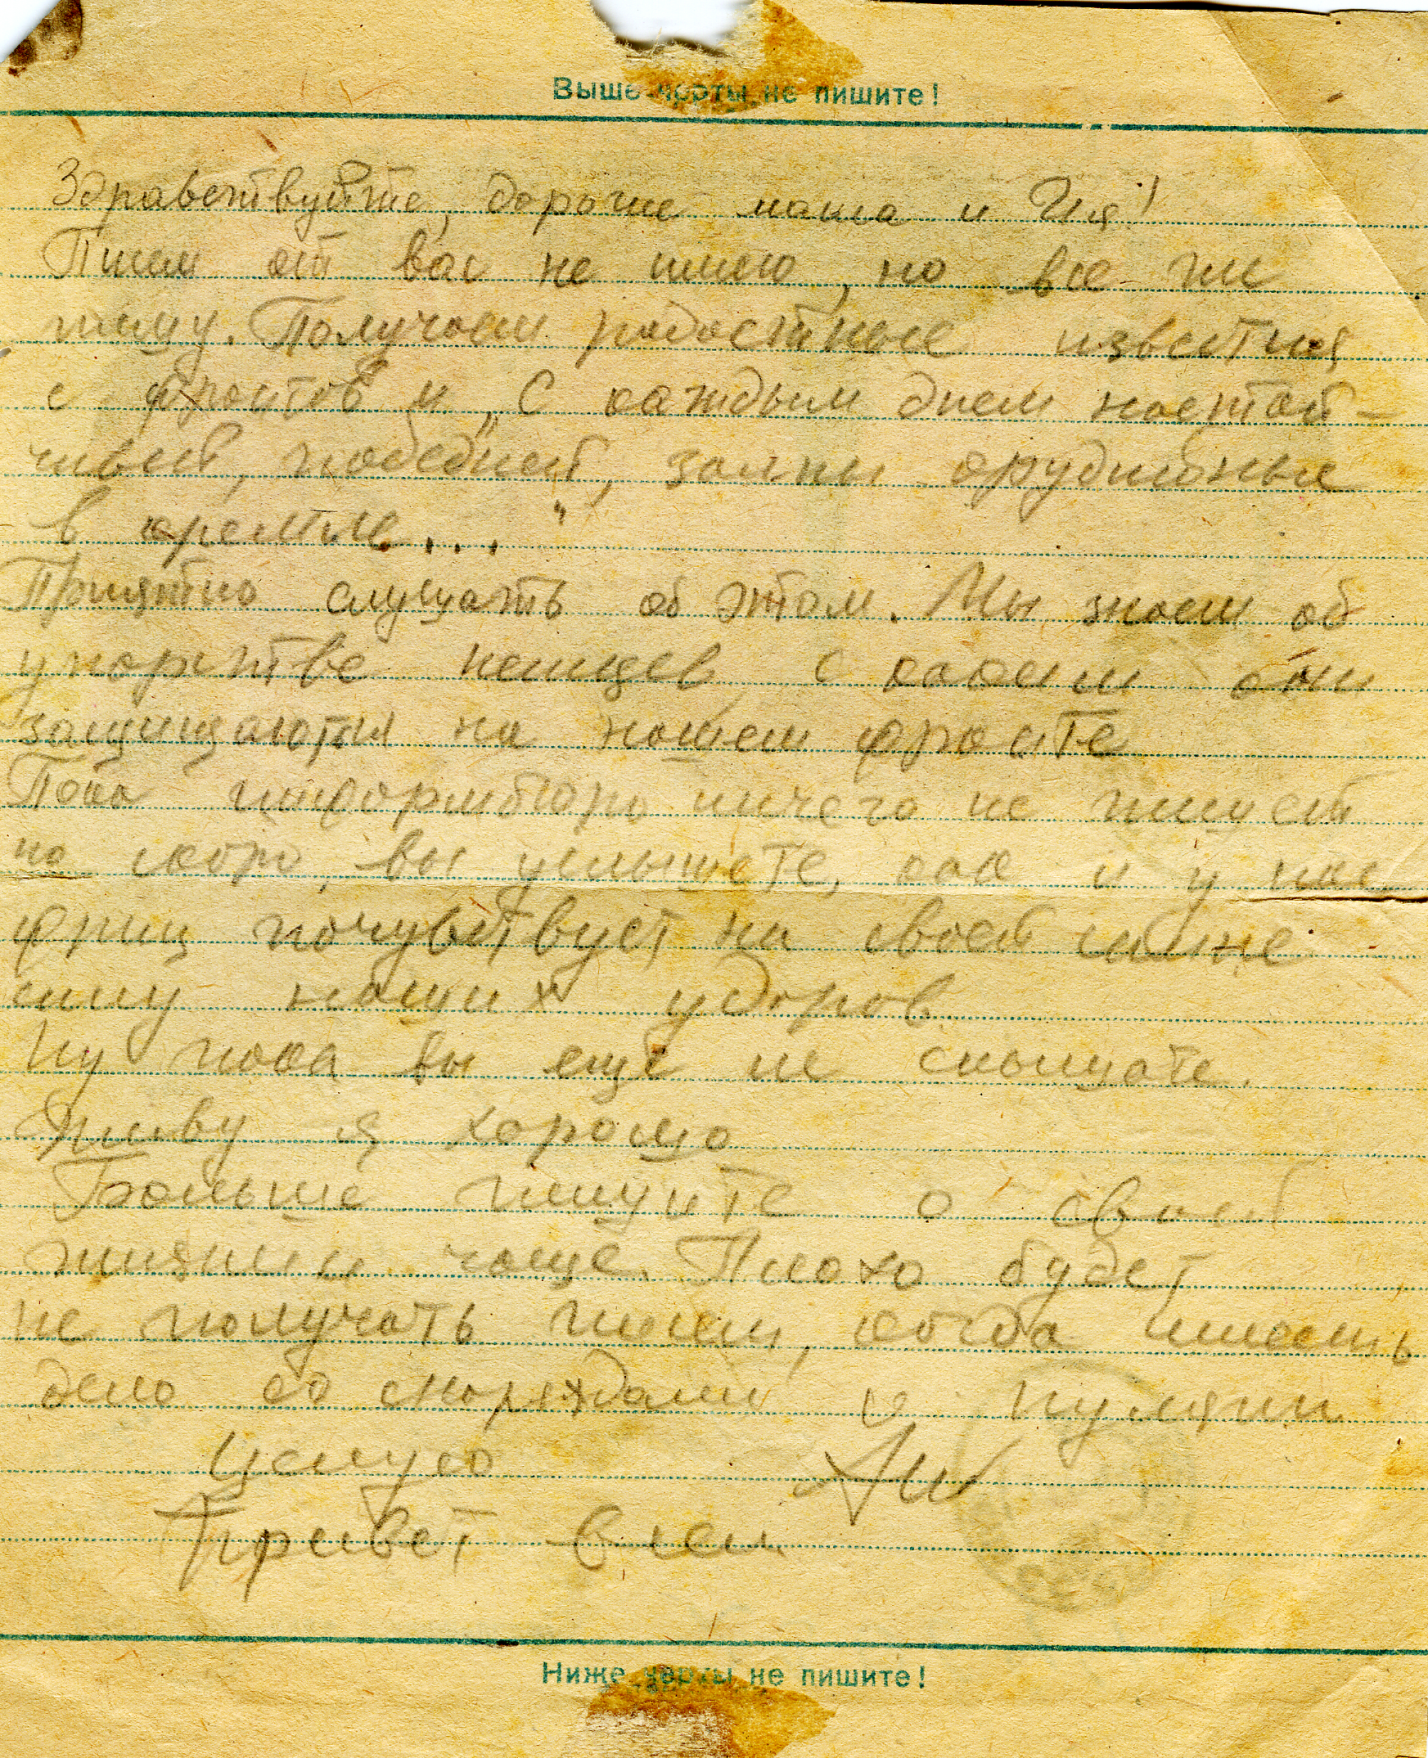 Выше черты не пишите!
Здравствуйте, дорогие мама и Ия!
Писем от вас не имею, но все же
пишу. Получаем радостные известия
с фронтов и „С каждым днем настой-
чивей, победней, залпы орудийные
в кремле..."
Приятно слушать об этом. Мы знаем об
упорстве немцев, с каким они
защищаются на нашем фронте
Пока информбюро ничего не пишет
но скоро, вы услышите, как и у нас
фриц почувствует на своей спине
силу наших ударов
Ну пока вы еще не слышите.
Живу я хорошо
Больше пишите о своей
жизни и чаще. Плохо будет
не получать писем, когда имеешь
дело со снарядами и пулями
Целую
Привет всем
Ниже черты не пишите!